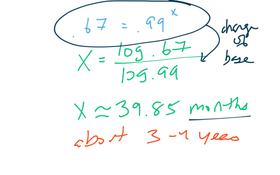 .67 = .99^x
change
of
base
X = log .67 / log .99
X ≈ 39.85 months
about 3-4 years